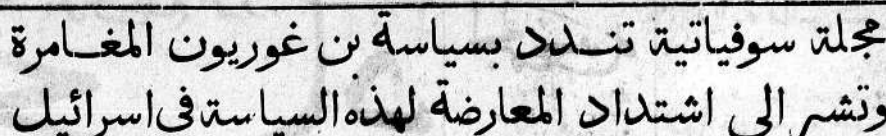 مجلة سوفياتية تنـدد بسياسة بن غوريون المغـامرة
وتشير الى اشتداد المعارضة لهذه السياسة في اسرائيل